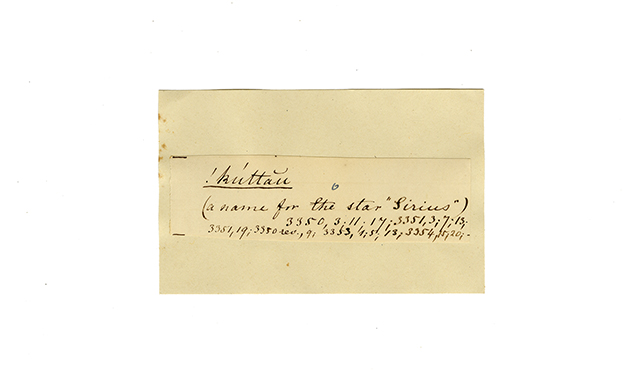 !kúttău
6
(a name for the star "Sirius")
3350, 3; 11; 17; 3351, 3; 7; 13;
3351, 19; 3350 rev., 9; 3353, 4; 5; 18; 3354, 15; 20;